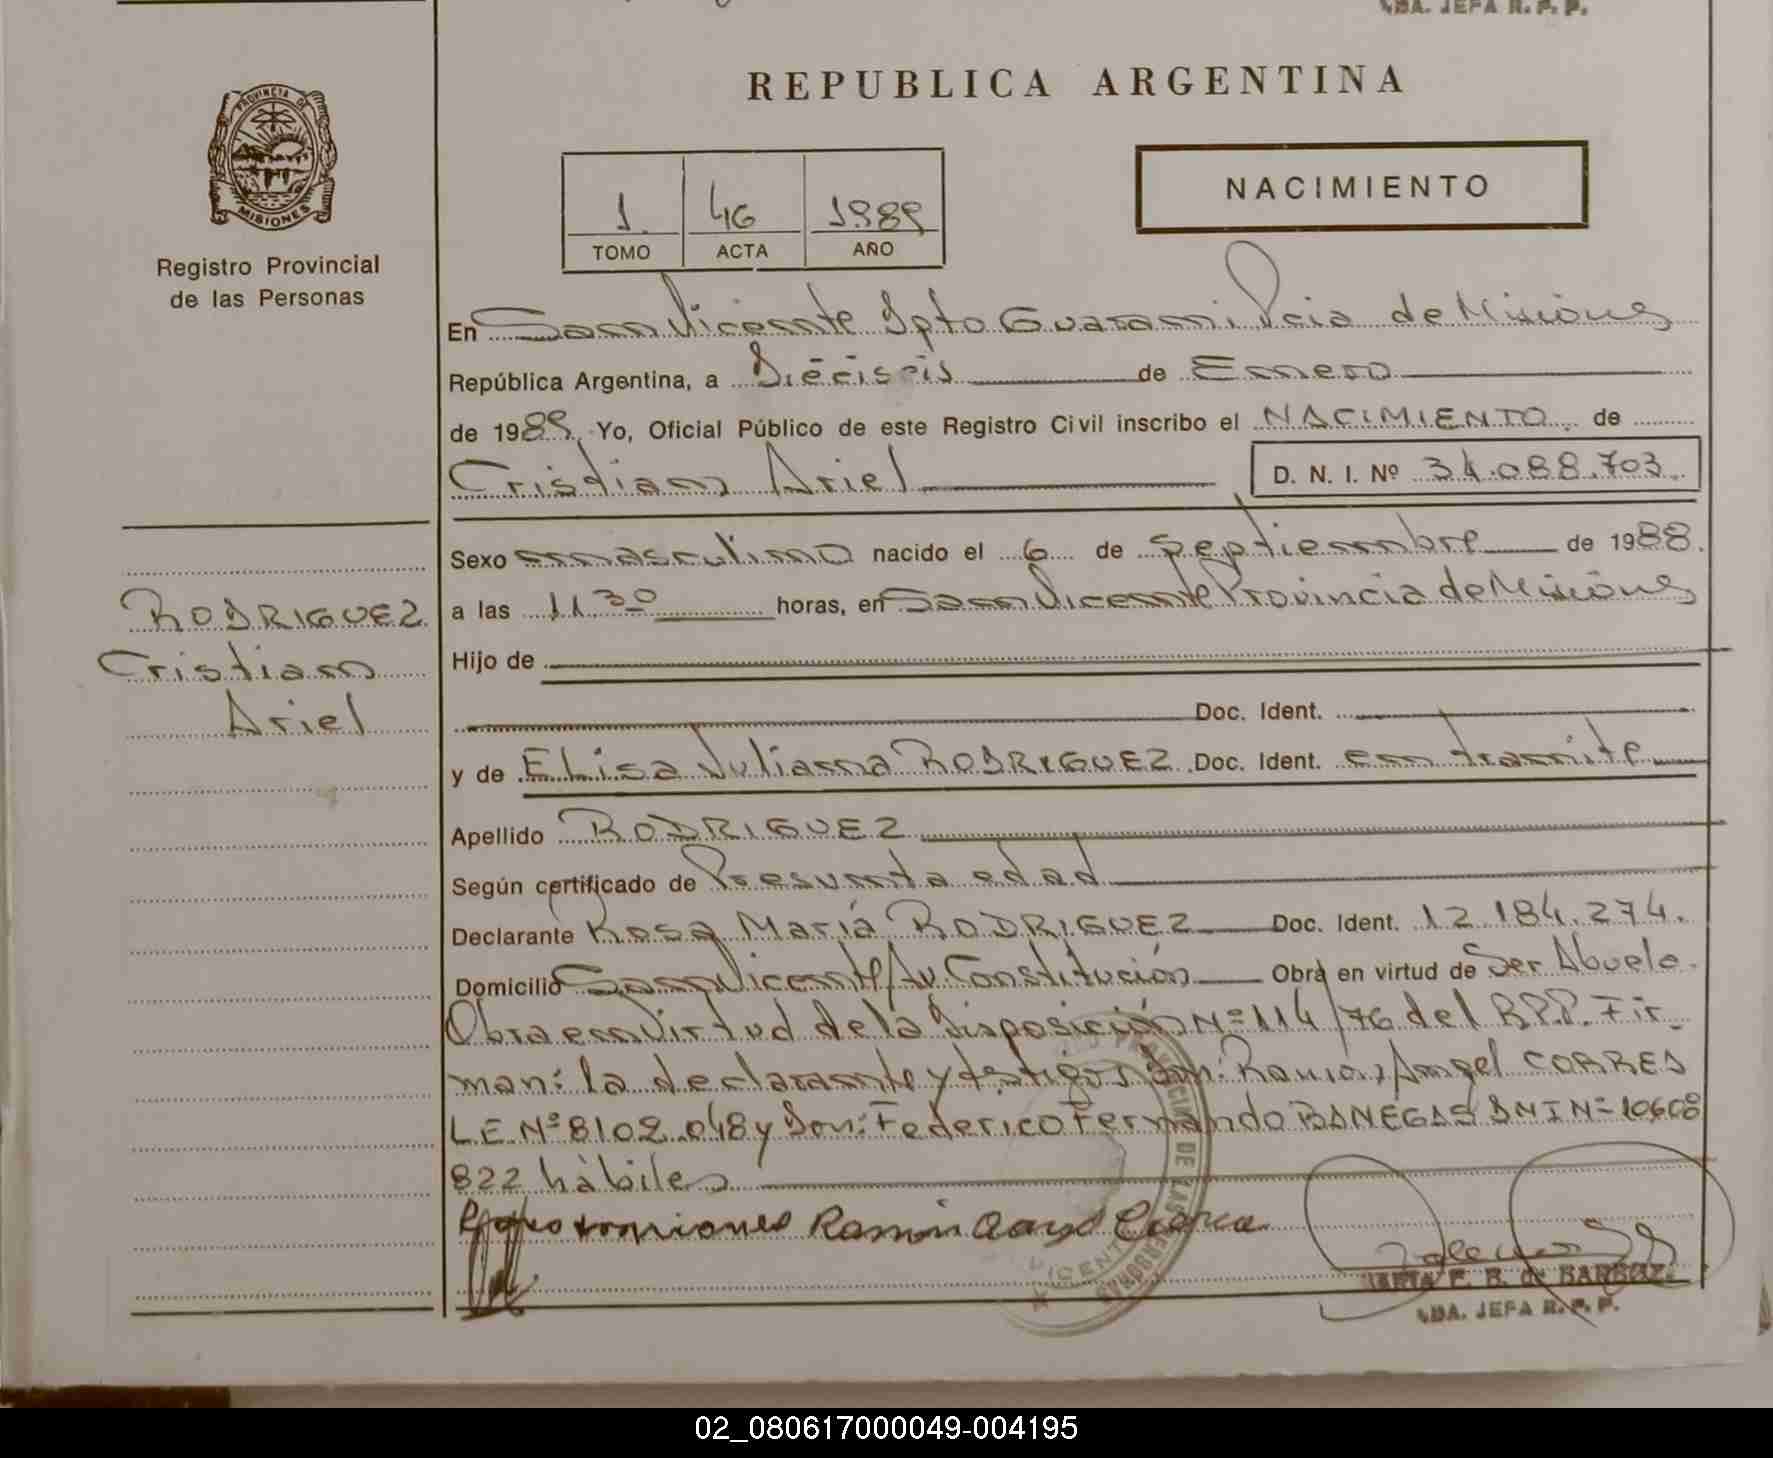 BDA. JEFA R. P. P.
REPUBLICA ARGENTINA
PROVINCIA DE
MISIONES
Registro Provincial
de las Personas
1 46 1989
TOMO ACTA AÑO
NACIMIENTO
En San Vicente Dpto Guarani Pcia de Misiones
República Argentina, a Dieciseis de Enero
de 1989 Yo, Oficial Público de este Registro Civil inscribo el NACIMIENTO de
Cristian Ariel D. N. I. Nº 34.088.703.
Sexo masculino nacido el 6 de septiembre de 1988.
a las 11 30 horas, en San Vicente Provincia de Misiones
Hijo de
Doc. Ident.
y de Elisa Juliana RODRIGUEZ Doc. Ident. en tramite
Apellido RODRIGUEZ
Según certificado de Presunta edad
Declarante Rosa María RODRIGUEZ Doc. Ident. 12.184.274.
Domicilio San Vicente Av. Constitución Obra en virtud de Ser Abuela.
Obra en Virtud de la Disposición Nº 114/76 del R.P.P. Fir-
man: la declarante y testigos Don: Ramón Angel CORRES
L.E. Nº 8102.048 y Don: Federico Fernando BANEGAS DNI Nº 10608
822 hábiles
RODRIGUEZ
Cristian
Ariel
Ramon
DE LAS PERSONAS
BARBOZA
BDA. JEFA R. P. P.
02_080617000049-004195